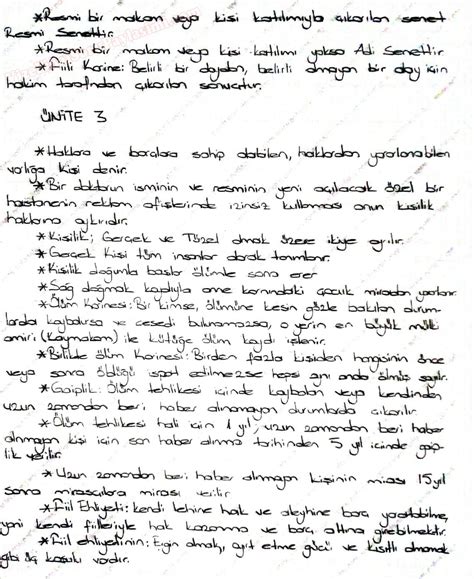 *Resmi bir makam veya kişi katılımıyla çıkarılan senet
Resmi Senettir.
*Resmi bir makam veya kişi katılımı yoksa Adi Senettir
*Fiili Karine: Belirli bir olaydan, belirli olmayan bir olay için
hakim tarafından çıkarılan sonuçtur.
ÜNİTE 3
*Haklara ve borçlara sahip olabilen, haklardan yararlanabilen
varlığa kişi denir.
*Bir doktorun isminin ve resminin yeni açılacak özel bir
hastanenin reklam afişlerinde izinsiz kullanması onun kişilik
haklarına aykırıdır.
*Kişilik; Gerçek ve Tüzel olmak üzere ikiye ayrılır.
*Gerçek Kişi tüm insanlar olarak tanımlanır.
*Kişilik doğumla başlar ölümle sona erer
*Sağ doğmak kaydıyla anne karnındaki çocuk mirastan yararlanır.
*Ölüm Karinesi: Bir kimse, ölümüne kesin gözle bakılan durum-
larda kaybolursa ve cesedi bulunamazsa, o yerin en büyük mülki
amiri (Kaymakam) ile kütüğe ölüm kaydı işlenir.
*Birlikte Ölüm Karinesi: Birden fazla kişiden hangisinin önce
veya sonra öldüğü ispat edilmezse hepsi aynı anda ölmüş sayılır.
*Gaiplik: Ölüm tehlikesi içinde kaybolan veya kendinden
uzun zamandan beri haber alınamayan durumlarda çıkarılır.
*Ölüm tehlikesi hali için 1 yıl, uzun zamandan beri haber
alınmayan kişi için son haber alınma tarihinden 5 yıl içinde gaip-
lik verilir.
*Uzun zamandan beri haber alınmayan kişinin mirası 15 yıl
sonra mirasçılara mirası verilir
*Fiil Ehliyeti: kendi lehine hak ve aleyhine borç yaratabilme,
yani kendi fiilleriyle hak kazanma ve borç altına girebilmektir.
*Fiil ehliyetinin: Ergin olmak, ayırt etme gücü ve kısıtlı olmamak
gibi üç koşulu vardır.